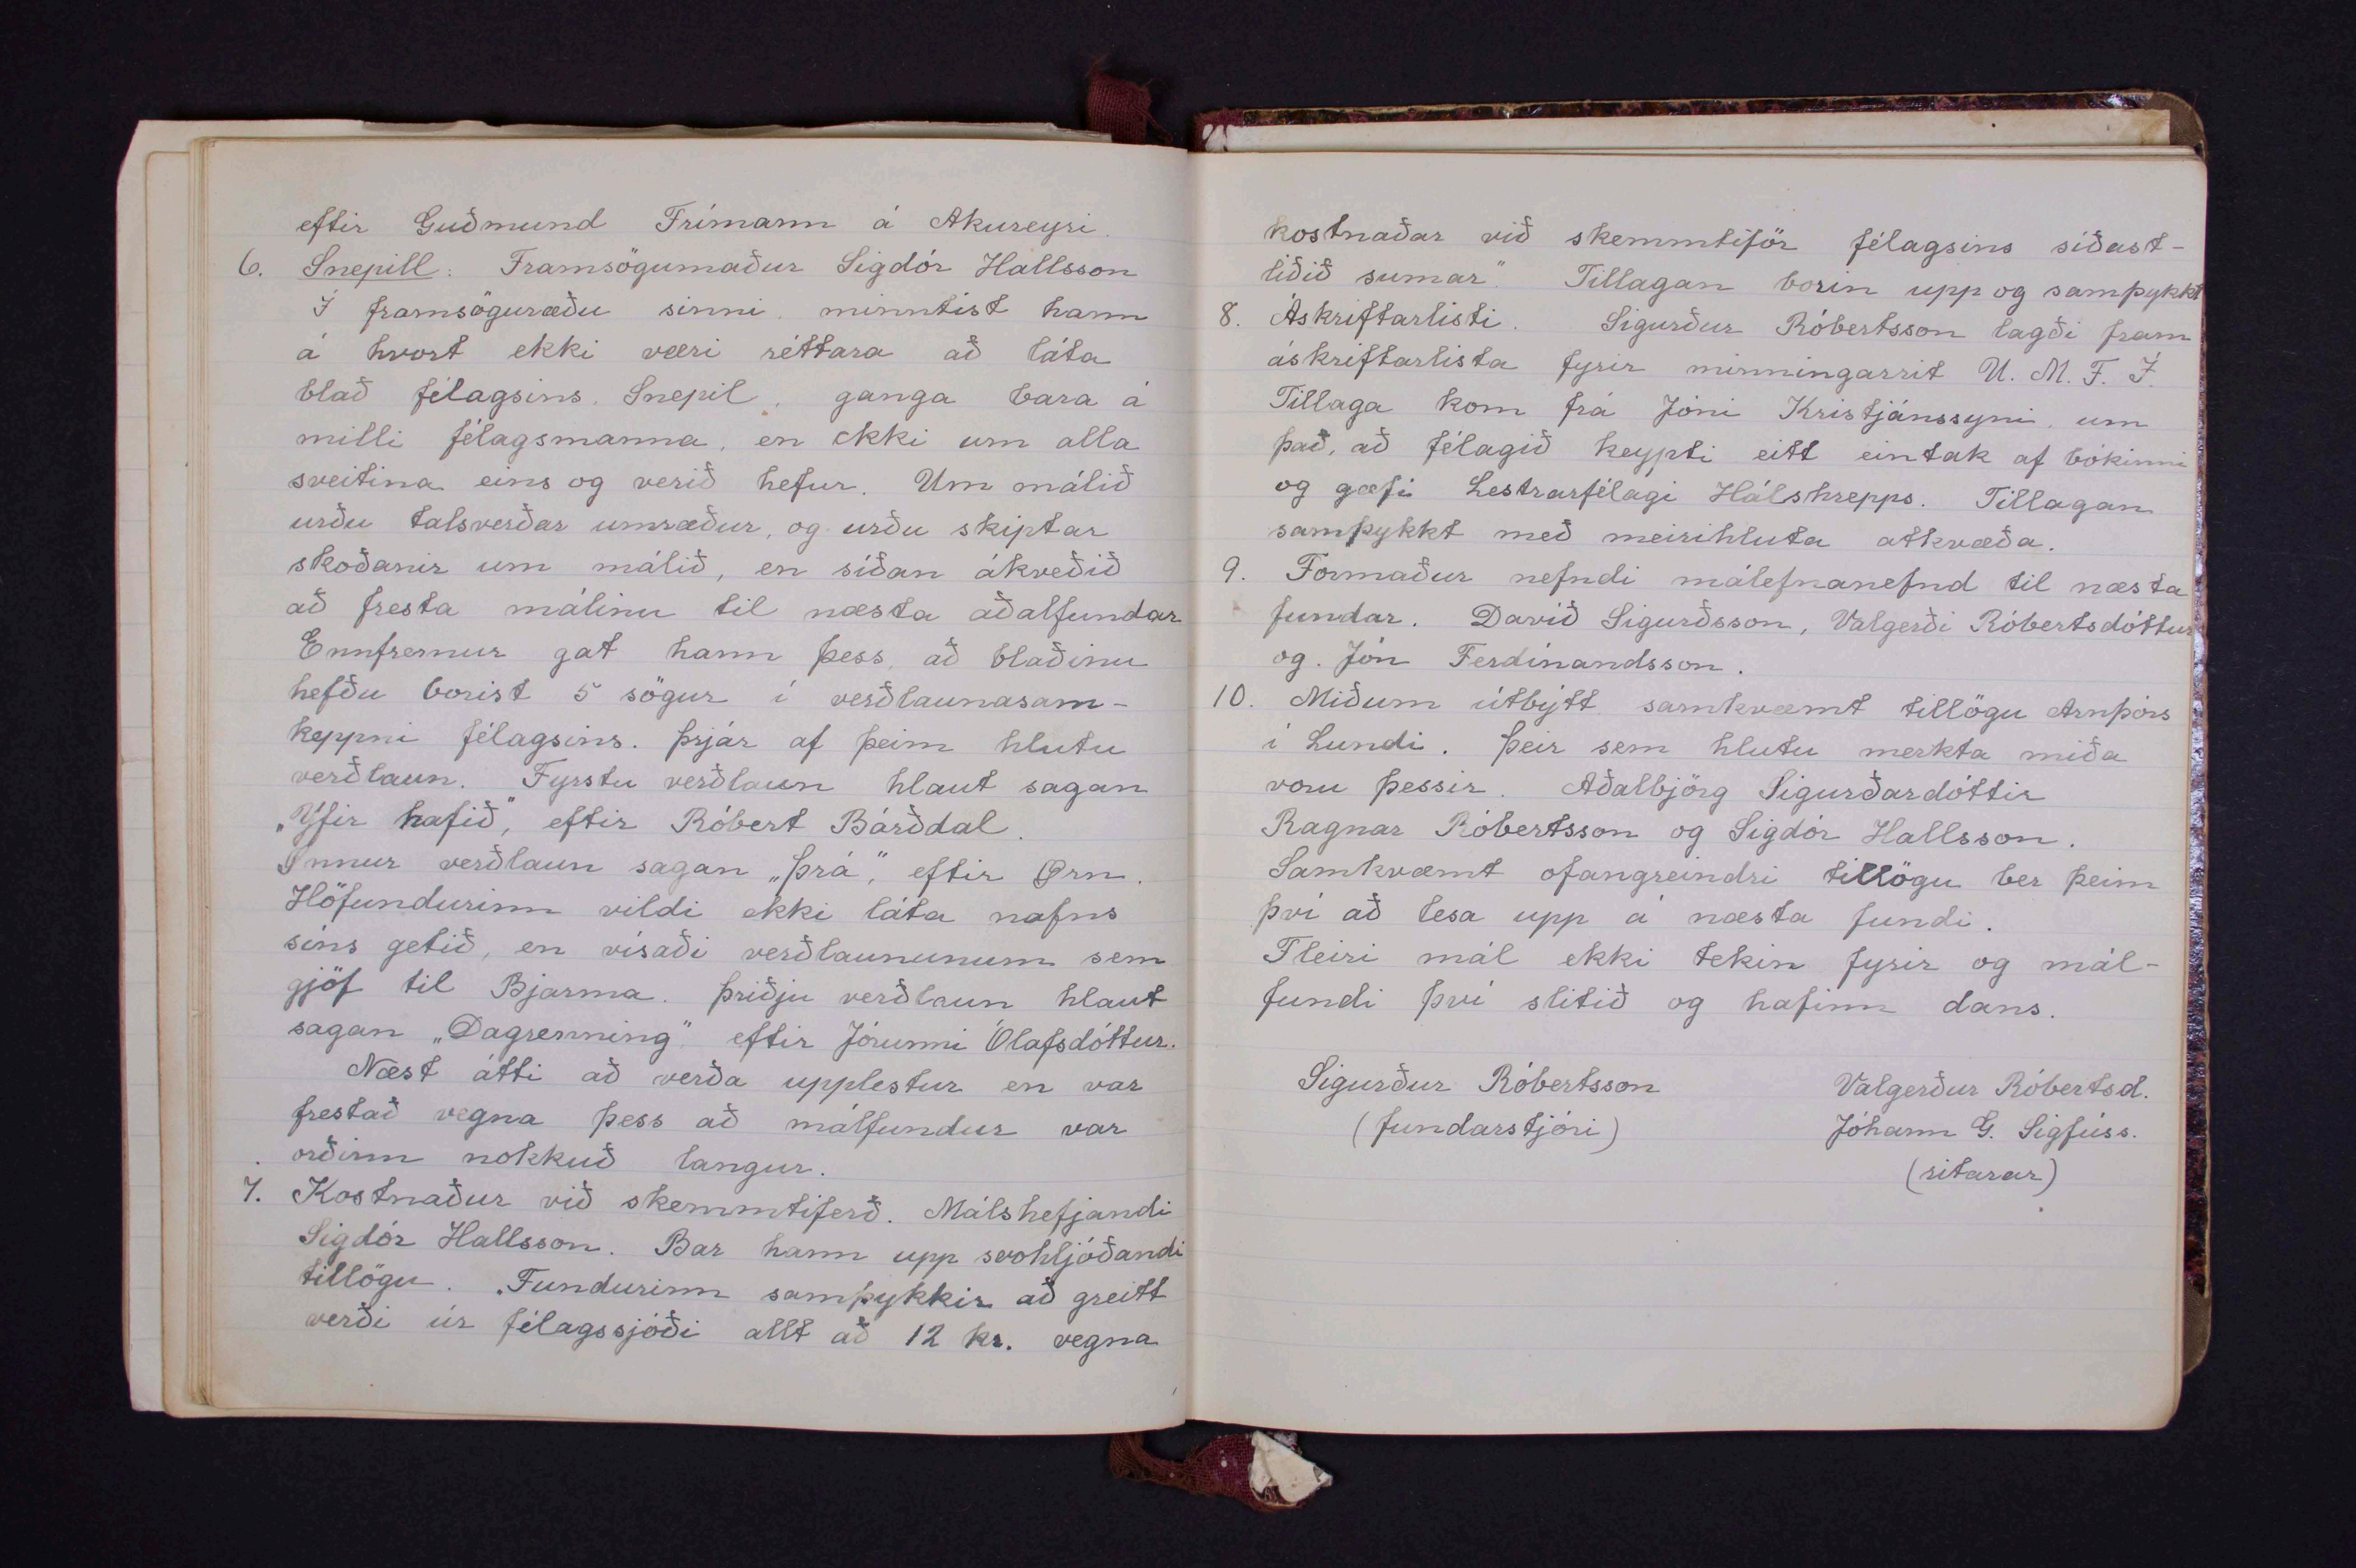 eftir Guðmund Frímann á Akureyri.
6. Snepill. Framsögumaður Sigdór Hallsson
Í framsöguræðu sinni minntist hann
á hvort ekki væri réttara að láta
blað félagsins, Snepil, ganga bara á
milli félagsmanna, en ekki um alla
sveitina eins og verið hefur. Um málið
urðu talsverðar umræður, og urðu skiptar
skoðanir um málið, en síðan ákveðið
að fresta málinu til næsta aðalfundar
Ennfremur gat hann þess, að blaðinu
hefðu borist 5 sögur í verðlaunasam-
keppni félagsins. Þrjár af þeim hlutu
verðlaun. Fyrstu verðlaun hlaut sagan
„Yfir hafið", eftir Róbert Bárðdal.
Önnur verðlaun sagan „Þrá", eftir Örn.
Höfundurinn vildi ekki láta nafns
síns getið, en vísaði verðlaununum sem
gjöf til Bjarma. Þriðju verðlaun hlaut
sagan „Dagrenning" eftir Jórunni Ólafsdóttur.
Næst átti að verða upplestur en var
frestað vegna þess að málfundur var
orðinn nokkuð langur.
7. Kostnaður við skemmtiferð. Málshefjandi
Sigdór Hallsson. Bar hann upp svohljóðandi
tillögu. „Fundurinn samþykkir að greitt
verði úr félagssjóði allt að 12 kr. vegna
kostnaðar við skemmtiför félagsins síðast-
liðið sumar". Tillagan borin upp og samþykkt
8. Áskriftarlisti. Sigurður Róbertsson lagði fram
áskriftarlista fyrir minningarrit U. M. F. Í.
Tillaga kom frá Jóni Kristjánssyni, um
það, að félagið keypti eitt eintak af bókinni
og gæfi Lestrarfélagi Hálshrepps. Tillagan
samþykkt með meirihluta atkvæða.
9. Formaður nefndi málefnanefnd til næsta
fundar. Davíð Sigurðsson, Valgerði Róbertsdóttur
og. Jón Ferdínandsson.
10. Miðum útbýtt samkvæmt tillögu Arnþórs
í Lundi. Þeir sem hlutu merkta miða
voru þessir. Aðalbjörg Sigurðardóttir
Ragnar Róbertsson og Sigdór Hallsson.
Samkvæmt ofangreindri tillögu ber þeim
því að lesa upp á næsta fundi.
Fleiri mál ekki tekin fyrir og mál-
fundi því slitið og hafinn dans.
Sigurður Róbertsson
(fundarstjóri)
Valgerður Róbertsd.
Jóhann G. Sigfúss.
(ritarar)